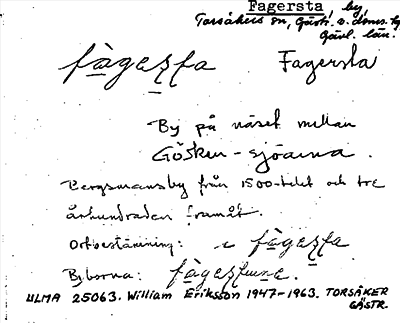 Fagersta, by,
Torsåkers sn, Gästr. ö. doms. tg
Gävl. län.
fàgeʂta Fagersta
By på näset mellan
Gösken-sjöarna.
Bergsmansby från 1500-talet och tre
århundraden framåt.
Ortbestämning: i fàgeʂta
Byborna:
ULMA 25063. William Eriksson 1947-1963. TORSÅKER
GÄSTR.